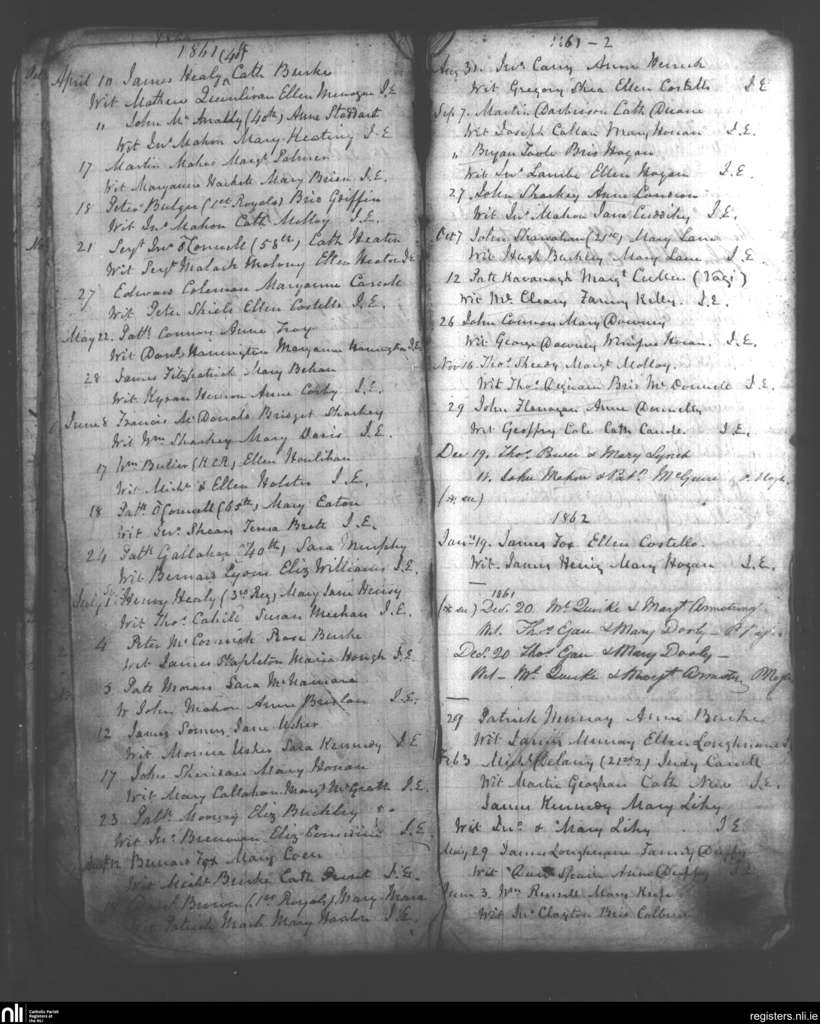 1861 (4th
April 10 James Healy Cath Burke
Wit Mathew Quinlivan Ellen I.E
" John Mc (40th) Anne Stoddart
Wit Jno Mahon Mary Keating I.E
17 Martin Maher Margt
Wit Maryanne Hackett Mary Brien I.E.
18 Peter Bulger (1st Royals) Brid Griffin
Wit Jno Mahon Cath Molloy I.E.
21 Sergt Jno O'Connell (58th) Cath Heaten
Wit Sergt Malachi Molony Ellen Heaten I.E
27 Edward Coleman Maryanne
Wit Peter Shiels Ellen Costello I.E.
May 22. Patk Connor Anne Troy
Wit Danl Harrington Maryanne Harrington I.E
28 James Fitzpatrick Mary Behan
Wit Kyran Anne Corby I.E.
June 8 Francis McDonald Bridget Sharkey
Wit Wm Sharkey Mary Davis I.E.
17 Wm Butler (R.C.R) Ellen Houlihan
Wit Michl & Ellen I.E.
18 Patk O'Connell (65th) Mary Eaton
Wit Jno Shean Teresa Brett I.E.
24 Patk Gallaher 40th, Sara Murphy
Wit Bernard Lyons Eliz Williams I.E.
July 1 Henry Healy (3rd Reg) Mary Jane Henry
Wit Thos Cahill Susan Meehan I.E.
4 Peter McCormick Rose Burke
Wit James Stapleton Maria Hough I.E
5 Patk Moran Sara McNamara
W John Mahon Anne I.E.
12 James Jane Usher
Wit Monica Usher Sara Kennedy I.E
17 John Sheridan Mary Honan
Wit Mary Callahan Margt McGrath I.E.
23 Patk Eliz Buckley
Wit Jno Brennan Eliz I.E.
12 Bernard Fox Mary Coen
Wit Michl Burke Cath I.E.
Brown (1st Royals) Mary Mara
Patrick Mark Mary Hanlon I.E.
1861-2
Aug 31. Jno Carry Anne
Wit Gregory Shea Ellen Costello I.E
Sep 7. Martin Cath Duane
Wit Joseph Mary Honan I.E.
" Bryan Toole Brid Hogan
Wit Jno Ellen Hogan I.E.
27 John Sharkey Anne
Wit Jno Mahon Jane Cuddihy I.E.
Oct 7 John (21st) Mary Lane
Wit Hugh Buckley Mary Lane I.E.
12 Patk Kavanagh Margt Cullen (Vagi)
Wit Ml Cleary Fanny Kiley. I.E.
26 John Connors Mary Downey
Wit George Downey Winifred Horan. I.E.
Nov 16 Thos Sheedy Margt Molloy
Wit Thos Brid McDonnell I.E.
29 John Flanagan Anne Donnelly
Wit Geoffry Cole Cath I.E.
Dec 19. Thos & Mary Lynch
W. John Mahon & Patk McGuire
(* see)
1862
Jany 19. James Fox Ellen Costello.
Wit. James Mary Hogan I.E.
1861
(* see) Dec. 20 Ml Quirke & Margt Armstrong
Wit. Thos Egan & Mary Dooly
Dec. 20 Thos Egan & Mary Dooly
Wit Ml Quirke & Margt
29 Patrick Murray Anne Burke
Wit James Murray Ellen Loughnane
Feb 3 Michl Delany (21st 2) Judy Carroll
Wit Martin Cath I.E.
James Kennedy Mary
Wit Jno & Mary I E
May 29 James Loughnane Fanny Duffy
Wit Spain Anne Duffy
June 3. Wm Russell Mary Keefe
Wit Jno Clayton Brid
nli
Catholic Parish
Registers at
the NLI
registers.nli.ie